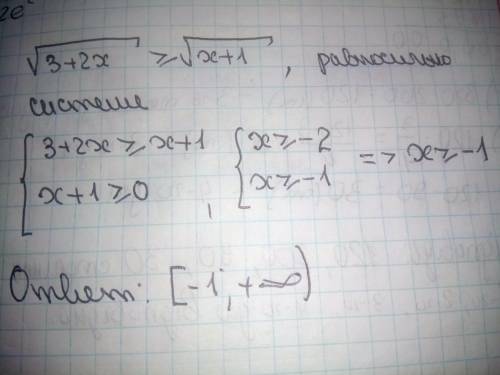 √3+2x ≥ √x+1, равносильно
системе
{ 3+2x ≥ x+1 { x ≥ -2 => x ≥ -1
x+1 ≥ 0 , x ≥ -1
Ответ: [-1; +∞)